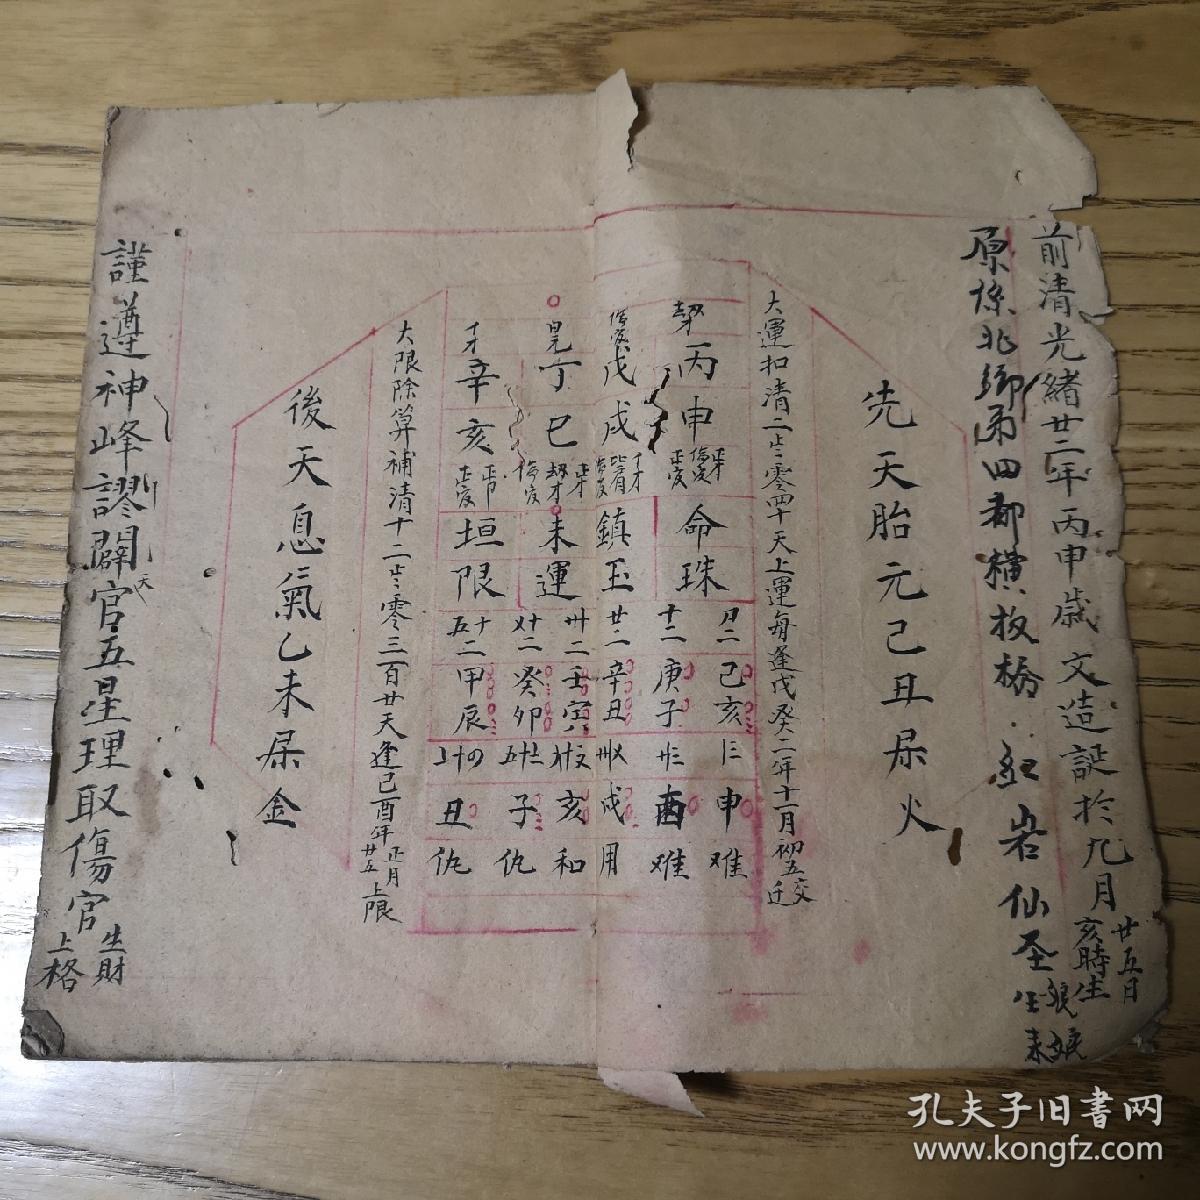 前清光緒廿二年丙申歲 文造誕於九月廿五日亥時生
原係北鄉第四都橫板橋·紅岩仙圣
先天胎元己丑屎火
大運扣清二歲零四十天上運每逢戊癸二年十一月初五交迁
劫丙申命珠
戊戌鎮玉
丁巳未運
才辛亥垣限
十二庚子
廿二辛丑
卅二壬寅
癸卯
五十二甲辰
申难
酉难
戌用
亥和
子仇
丑仇
大限除算補清十二歲零三百廿天逢己酉年正月廿五上限
後天息氣乙未屎金
謹遵神峰謬闢官天五星理取傷官生財上格
孔夫子旧書网
www.kongfz.com